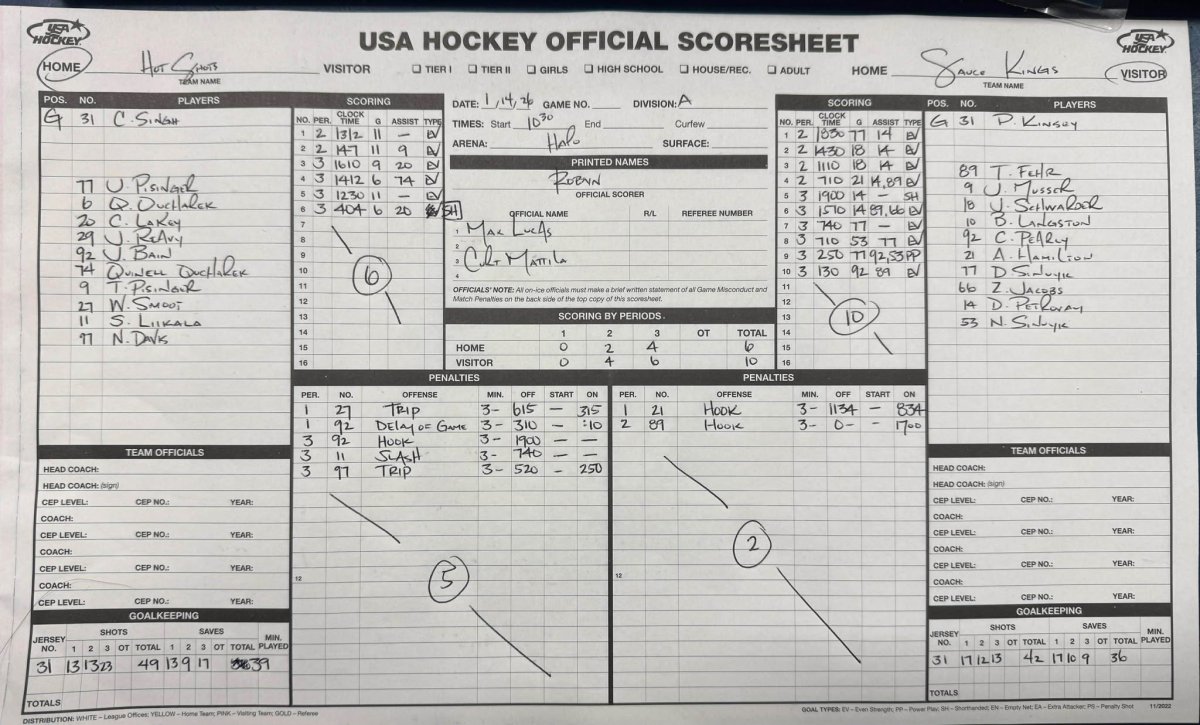 USA HOCKEY
USA HOCKEY OFFICIAL SCORESHEET
USA HOCKEY
HOME Hot Shots VISITOR ☐ TIER I ☐ TIER II ☐ GIRLS ☐ HIGH SCHOOL ☐ HOUSE/REC. ☐ ADULT HOME Sauce Kings VISITOR
TEAM NAME
TEAM NAME
POS. NO. PLAYERS
G 31 C. Singh
77 J. Pisinger
6 Q. Ducharek
20 C. Lakey
29 J. Reavy
92 J. Bain
74 Quinell Ducharek
9 T. Pisinger
27 W. Smoot
11 S. Liikala
97 N. Davis
SCORING
NO. PER. CLOCK TIME G ASSIST TYPE
1 2 1312 11 — EV
2 2 147 11 9 EV
3 3 1610 9 20 EV
4 3 1412 6 74 EV
5 3 1230 11 — EV
6 3 404 6 20 SH
7
8
9
10 6
11
12
13
14
15
16
DATE: 1/14/26 GAME NO. DIVISION: A
TIMES: Start 1030 End Curfew
ARENA: Halo SURFACE:
PRINTED NAMES
Robyn
OFFICIAL SCORER
OFFICIAL NAME R/L REFEREE NUMBER
1 Max Lucas
2
3 Curt Mattila
4
OFFICIALS' NOTE: All on-ice officials must make a brief written statement of all Game Misconduct and
Match Penalties on the back side of the top copy of this scoresheet.
SCORING BY PERIODS
1 2 3 OT TOTAL
HOME 0 2 4 6
VISITOR 0 4 6 10
SCORING
NO. PER. CLOCK TIME G ASSIST TYPE
1 2 1830 77 14 EV
2 2 1430 18 14 EV
3 2 1110 18 14 EV
4 2 710 21 14,89 EV
5 3 1900 14 — SH
6 3 1510 14 89,66 EV
7 3 740 77 — EV
8 3 710 53 77 EV
9 3 250 77 92,53 PP
10 3 130 92 89 EV
11
12
13 10
14
15
16
POS. NO. PLAYERS
G 31 P. Kinsey
89 T. Fehr
9 J. Musser
18 J. Schwarder
10 B. Langston
92 C. Pearly
21 A. Hamilton
77 D. Sinuyk
66 Z. Jacobs
14 D. Petrovay
53 N. Sinuyk
PENALTIES
PER. NO. OFFENSE MIN. OFF START ON
1 27 Trip 3- 615 — 315
1 92 Delay of Game 3- 310 — :10
3 92 Hook 3- 1900 — —
3 11 Slash 3- 740 — —
3 97 Trip 3- 520 — 250
12
5
PENALTIES
PER. NO. OFFENSE MIN. OFF START ON
1 21 Hook 3- 1134 — 834
2 89 Hook 3- 0- - 1700
12
2
TEAM OFFICIALS
HEAD COACH:
HEAD COACH: (sign)
CEP LEVEL: CEP NO.: YEAR:
COACH:
CEP LEVEL: CEP NO.: YEAR:
COACH:
CEP LEVEL: CEP NO.: YEAR:
COACH:
CEP LEVEL: CEP NO.: YEAR:
GOALKEEPING
JERSEY NO. SHOTS 1 2 3 OT TOTAL SAVES 1 2 3 OT TOTAL MIN. PLAYED
31 13 13 23 49 13 9 17 39
TOTALS
TEAM OFFICIALS
HEAD COACH:
HEAD COACH: (sign)
CEP LEVEL: CEP NO.: YEAR:
COACH:
CEP LEVEL: CEP NO.: YEAR:
COACH:
CEP LEVEL: CEP NO.: YEAR:
COACH:
CEP LEVEL: CEP NO.: YEAR:
GOALKEEPING
JERSEY NO. SHOTS 1 2 3 OT TOTAL SAVES 1 2 3 OT TOTAL MIN. PLAYED
31 17 12 13 42 17 10 9 36
TOTALS
DISTRIBUTION: WHITE – League Offices; YELLOW – Home Team; PINK – Visiting Team; GOLD – Referee
GOAL TYPES: EV – Even Strength; PP – Power Play; SH – Shorthanded; EN – Empty Net; EA – Extra Attacker; PS – Penalty Shot 11/2022